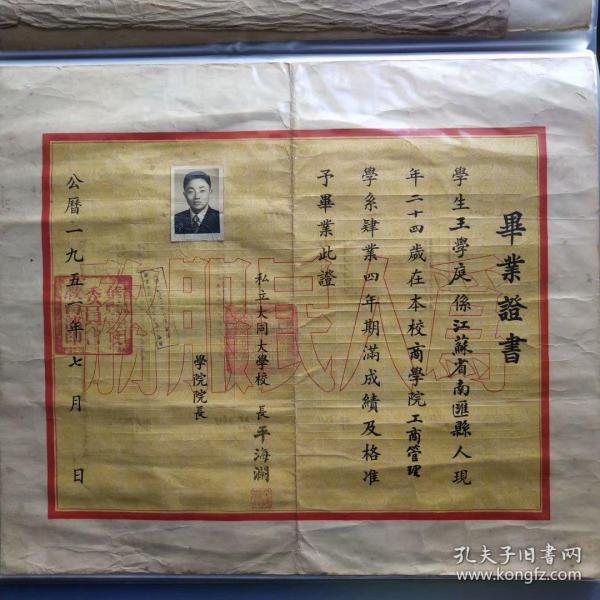 畢業證書
學生王學庭係江蘇省南匯縣人現
年二十四歲在本校商學院工商管理
學系肄業四年期滿成績及格准
予畢業此證
私立大同大學校長平海瀾
學院院長
公曆一九五一年七月日
為人民服務
孔夫子旧书网
www.kongfz.com